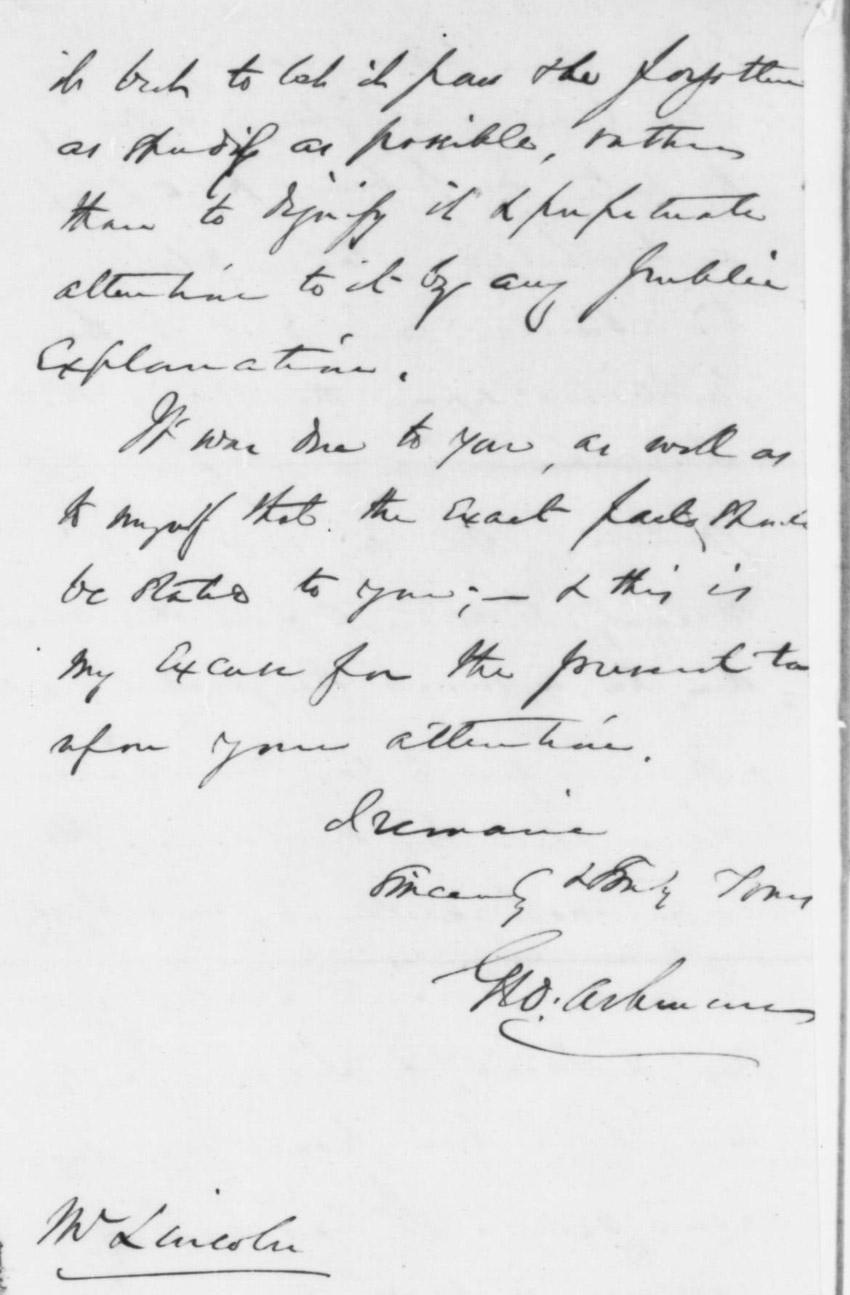 it best to let it pass & be forgotten
as speedily as possible, rather
than to dignify it & perpetuate
attention to it by any public
Explanation.
It was due to you, as well as
to myself that the Exact facts should
be stated to you; — & this is
my Excuse for the present tax
upon your attention.
I remain
Sincerely & truly Yours
Geo. Ashmun
Mr Lincoln